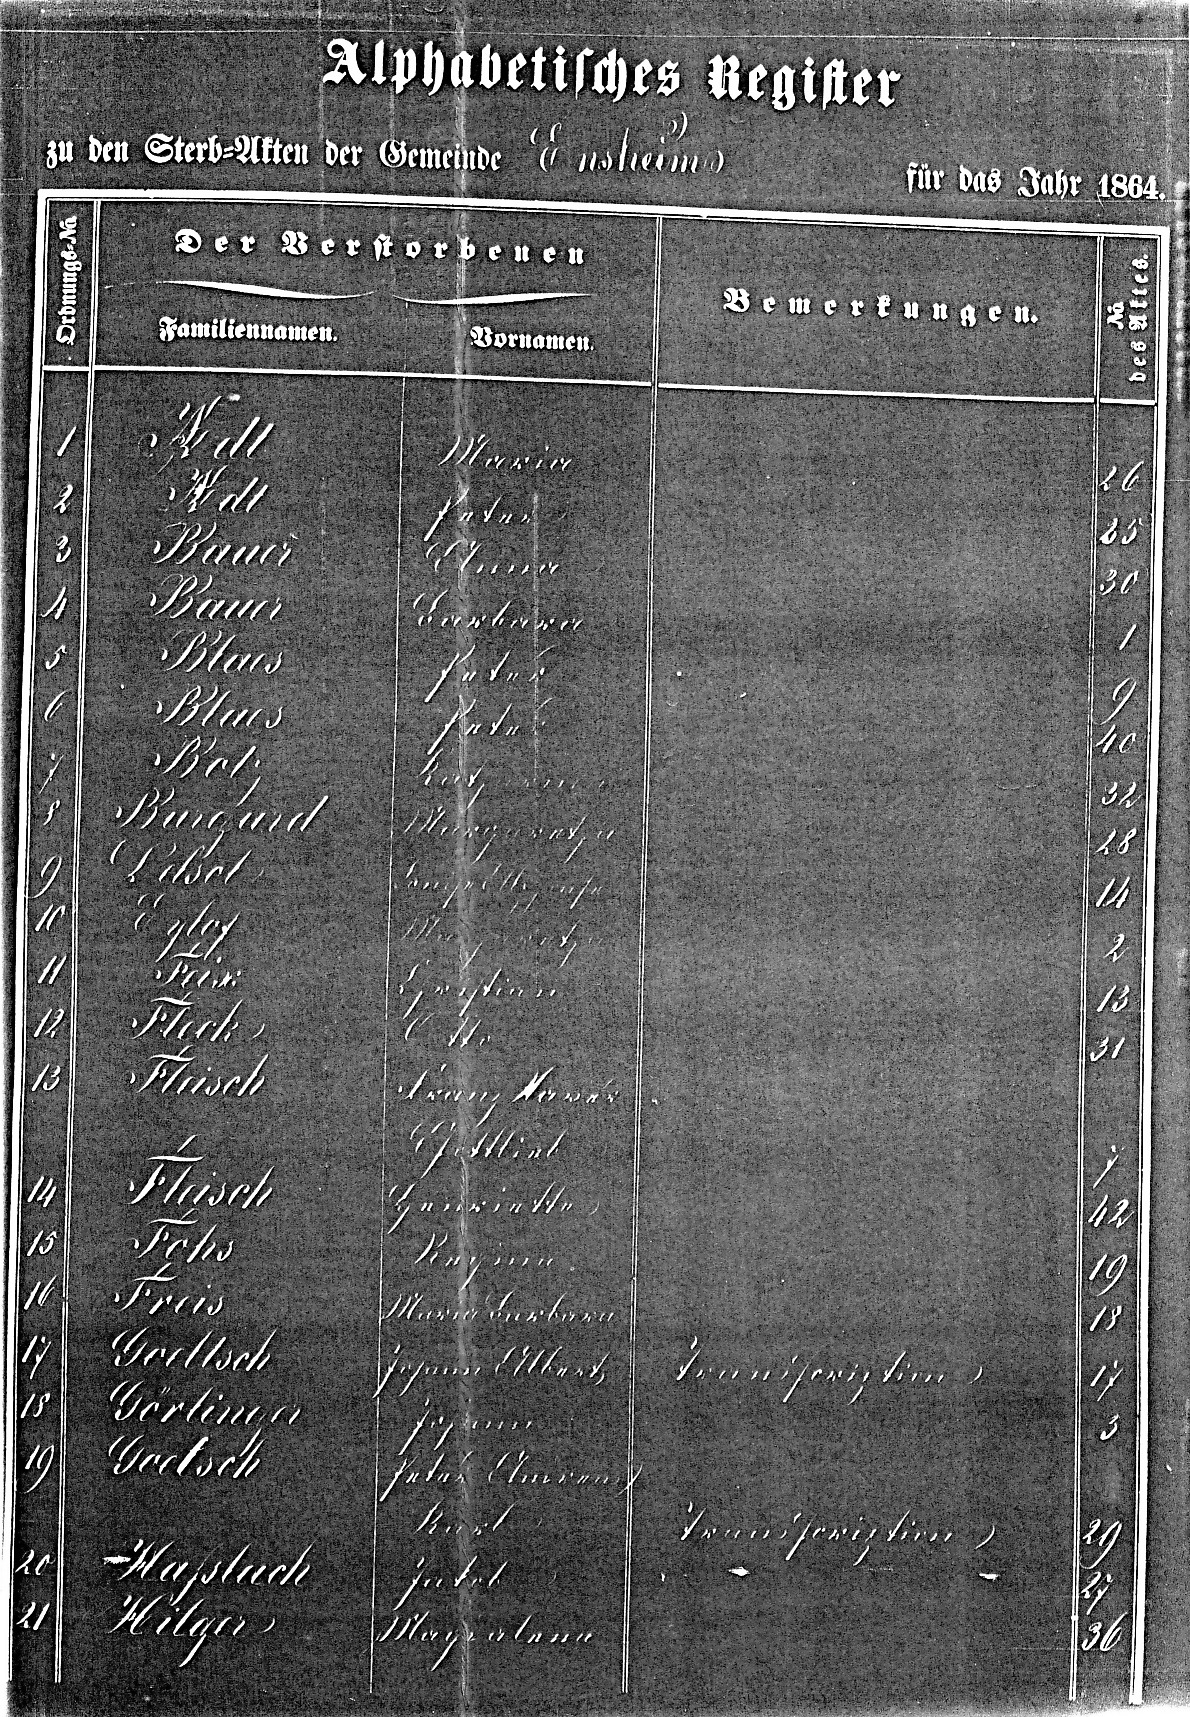 Alphabetisches Register
zu den Sterb=Akten der Gemeinde Ensheim für das Jahr 1864.
Ordnungs=No Der Verstorbenen Bemerkungen. No des Aktes.
Familiennamen. Vornamen.
1 Adt Maria 26
2 Adt Peter 25
3 Bauer Anna 30
4 Bauer Barbara 1
5 Blaes Peter 9
6 Blaes Peter 40
7 Botz Katharina 32
8 Burgard Margaretha 28
9 14
10 Margaretha 2
11 Feix Christian 13
12 Fleck Otto 31
13 Fleisch Franz Xaver
Gottlieb 7
14 Fleisch Henriette 42
15 Fohs Regina 19
16 Freis Maria Barbara 18
17 Goettsch Johann Albert Transscription 17
18 Görlinger Johann 3
19 Goetsch Peter
Karl Transscription 29
20 Hassbach Jakob 27
21 Hilger Magdalena 36